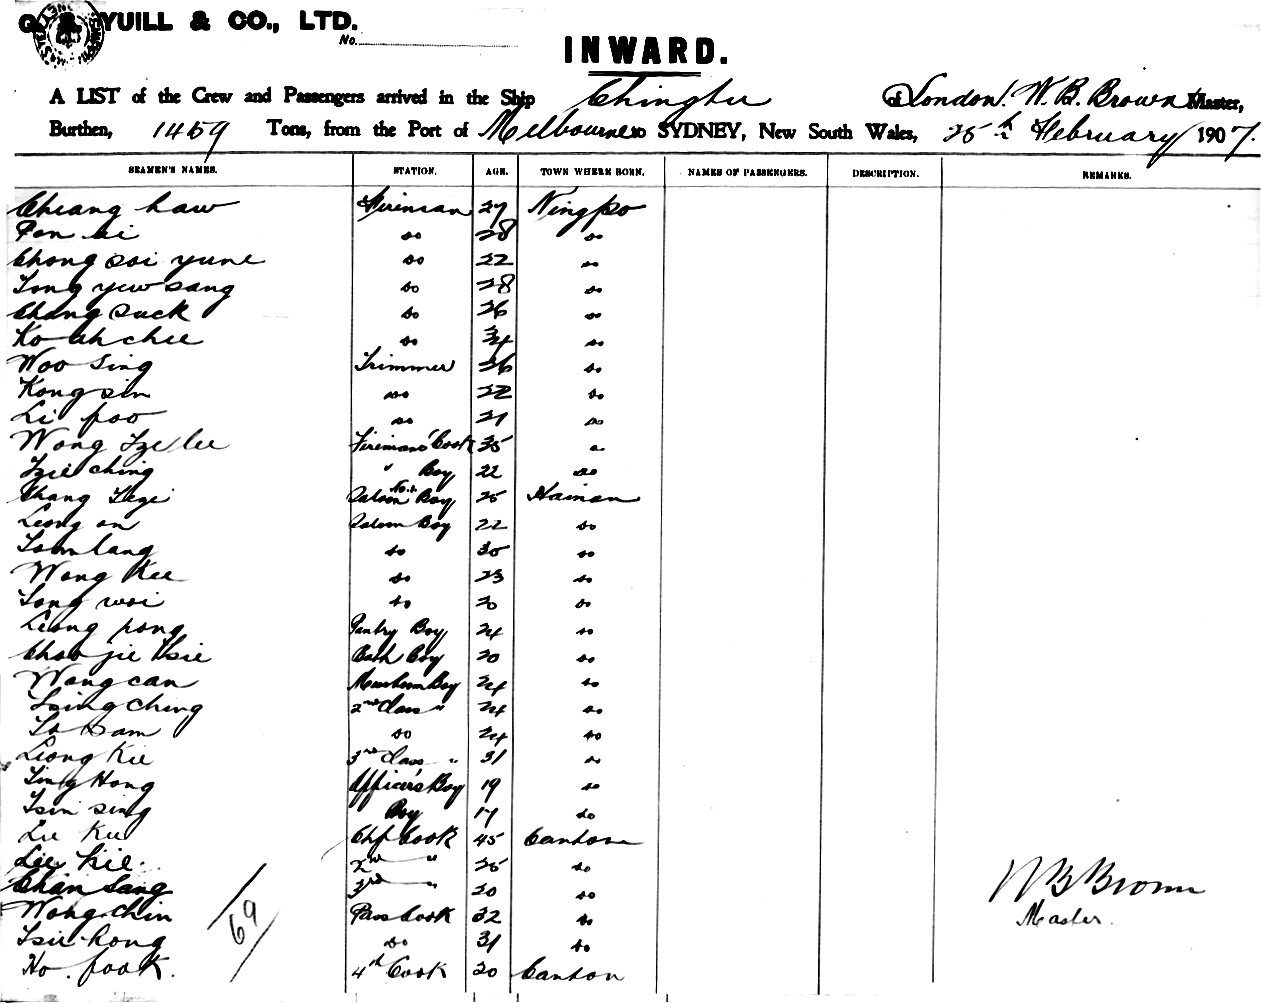 YUILL & CO., LTD.
No.
INWARD.
A LIST of the Crew and Passengers arrived in the Ship Chingtu of London. W. B. Brown Master,
Burthen, 1459 Tons, from the Port of Melbourne to SYDNEY, New South Wales, 25th February 1907.
SEAMEN'S NAMES. STATION. AGE. TOWN WHERE BORN. NAMES OF PASSENGERS. DESCRIPTION. REMARKS.
Chiang haw Fireman 27 Ningpo
Pan ai do 28 do
Chong soi yune do 22 do
Tong yew sang do 28 do
Chang suck do 26 do
Ko ah chee do 34 do
Woo Sing Trimmer 26 do
Kong sin do 22 do
Li foo do 21 do
Wong Tze lee Fireman's Cook 35 do
Tzie ching " Boy 22 do
Chang No. 1 Saloon Boy 25 Hainan
Leong on Saloon Boy 22 do
Tom lang do 30 do
Wong Kee do 23 do
Tong woi do 20 do
Leong pong Pantry Boy 24 do
Choo jie Bath Boy 20 do
Wong can Messroom Boy 24 do
Tsing Ching 2nd Class " 24 do
To sam do 24 do
Leong Kie 3rd Class " 31 do
Ting Hong Officer's Boy 19 do
Tsin sing Boy 17 do
Lee Kee Chf Cook 45 Canton
Lee kie. 2nd " 25 do
Chan Sang 3rd " 20 do
Wong chin Pass Cook 32 do
Tsie hong do 31 do
Ho. fook. 4th Cook 20 Canton
69
W B Brown
Master.